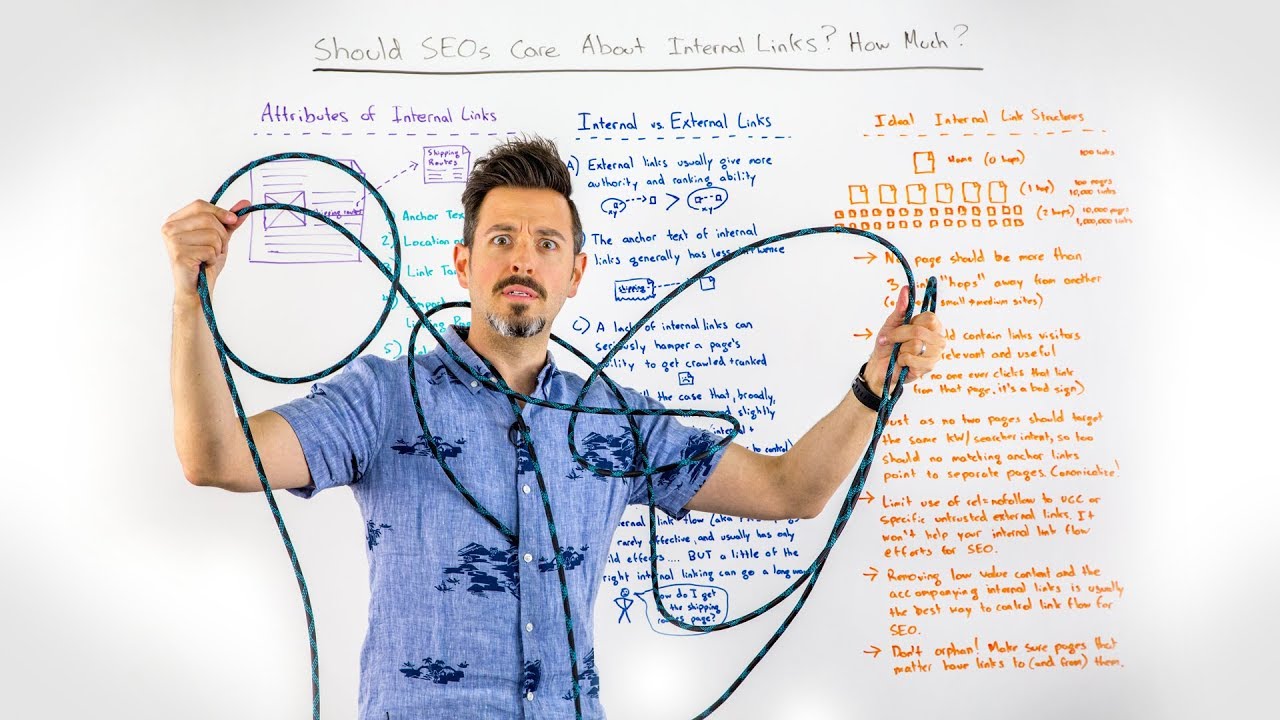 Should SEOs Care About Internal Links? How Much?
Attributes of Internal Links
Shipping
Routes
Anchor Tex
2) Location o
Link Ta
5)
Internal vs. External Links
A) External links usually give more
authority and ranking ability
xy
>
xy
The anchor text of internal
links generally has less influence
shipping
C) A lack of internal links can
seriously hamper a page's
ability to get crawled + ranked
the case that, broadly,
slightly
to control)
link flow (aka
rarely effective, and usually has only
effects.... BUT a little of the
right internal linking can go a long way
How do I get
the shipping
routes page?
Ideal Internal Link Structures
Home (0 hops)
100 links
(1 hop)
100 pages
10,000 links
(2 hops)
10,000 pages
1,000,000 links
→ No page should be more than
3 "hops" away from another
small → medium sites)
contain links visitors
relevant and useful
no one ever clicks that link
from that page, it's a bad sign)
Just as no two pages should target
the same KW/searcher intent, so too
should no matching anchor links
point to separate pages. Canonicalize!
→ Limit use of rel=nofollow to UGC or
specific untrusted external links. It
won't help your internal link flow
efforts for SEO.
→ Removing low value content and the
accompanying internal links is usually
the best way to control link flow for
SEO.
→ Don't orphan! Make sure pages that
matter have links to (and from) them.